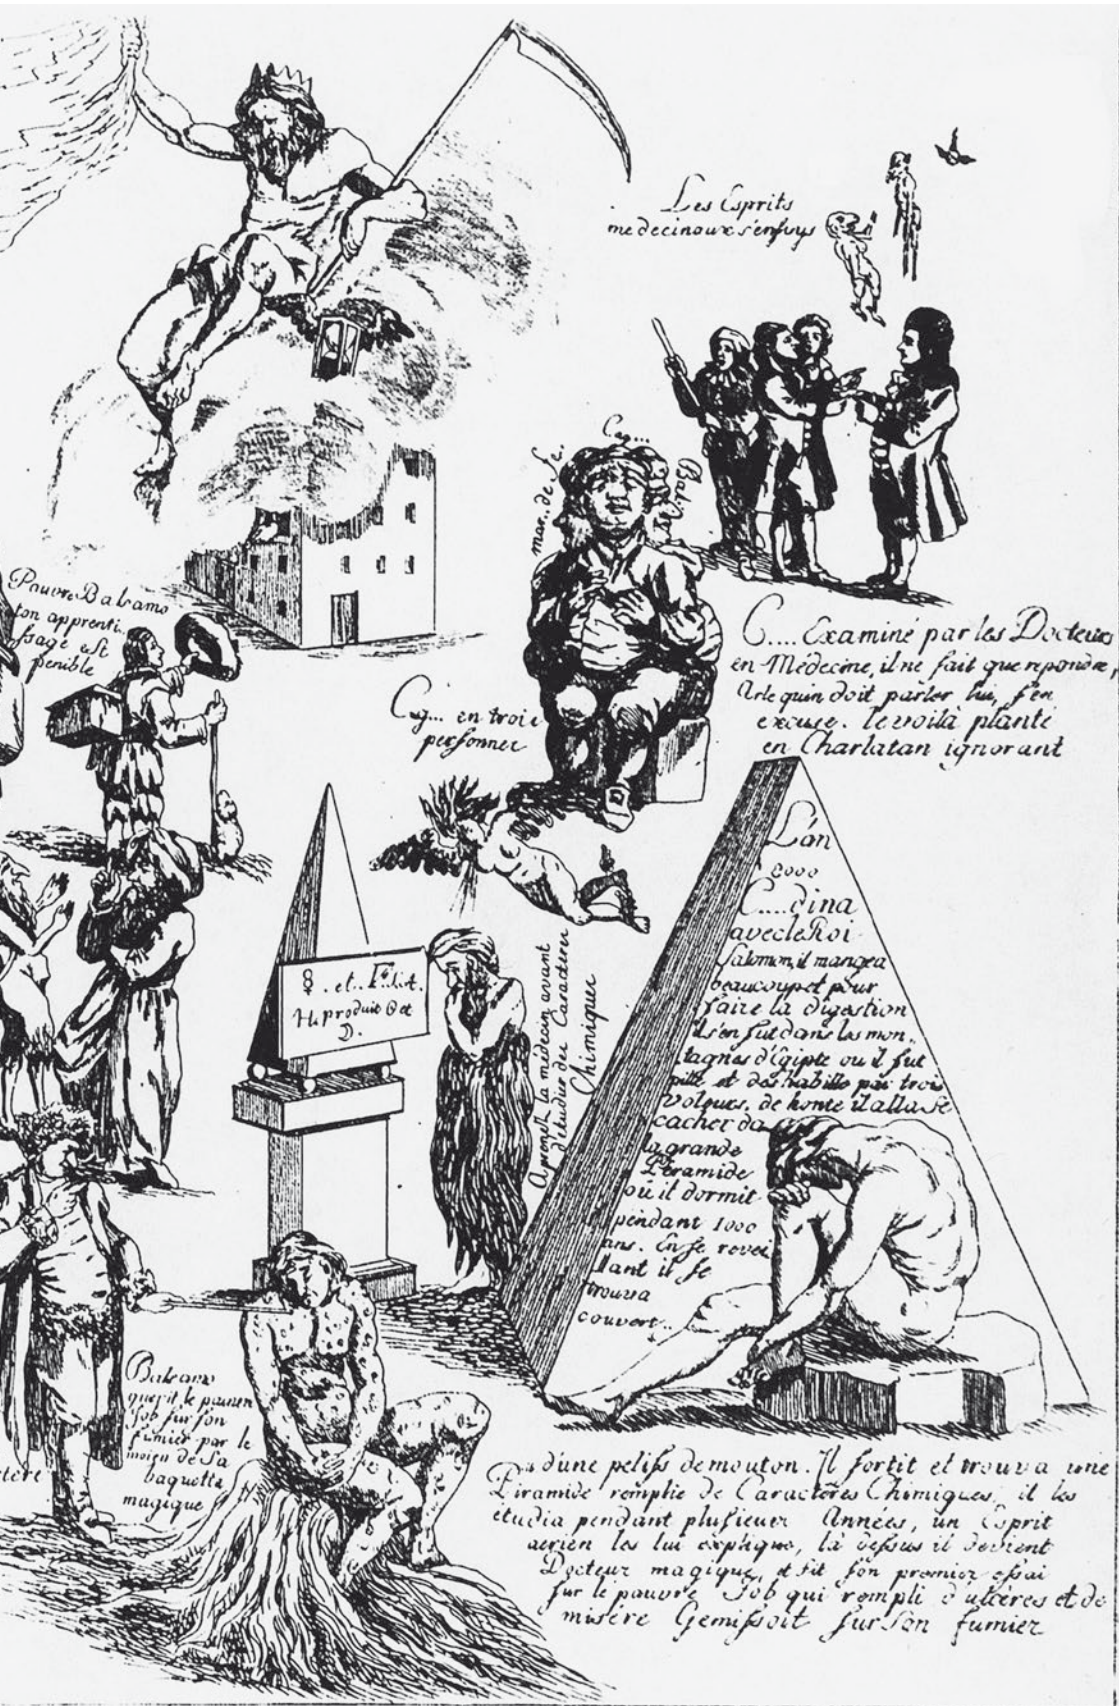 Les Esprits
medecinaux s'enfuys
Cag...
mar.. de Fe.
Bals.
Pauvre Balsamo
ton apprenti-
ssage est
penible
C.... Examiné par les Docteurs
en Médecine, il ne fait que repondre,
Arlequin doit parler lui, s'en
excuse. le voilà planté
en Charlatan ignorant
Cag... en trois
personnes
L'án
2000
C.....dina
avec le Roi
Salomon, il mangea
beaucoup et pour
faire la digestion
il s'en fut dans les mon-
tagnes d'Egipte ou il fut
pillé et deshabillé par trois
voleurs. de honte il alla se
cacher da
la grande
Piramide
où il dormit
pendant 1000
ans. En se revei
llant il se
trouva
couvert..
☿ . et .
♃ produit ☉ et
☽.
Apromett. la médecin avant
d'étudier des Caracteres
Chimiques
Balsamo
guerit le pauvre
Job sur son
fumier par le
moien de sa
baguette
magique
d'une peliss de mouton. Il sortit et trouva une
Piramide remplie de Caractères Chimiques, il les
étudia pendant plusieurs Années, un Esprit
aerien les lui explique, là dessus il devient
Docteur magique, et fit son premier essai
sur le pauvre Job qui rempli d'ulcères et de
misère Gemissoit sur son fumier